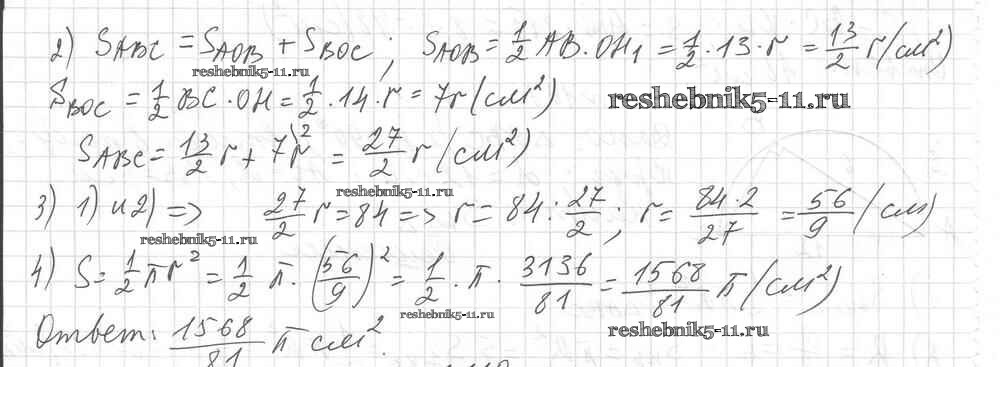 2) S_ABC = S_AOB + S_BOC ; S_AOB = 1/2 AB · OH₁ = 1/2 · 13 · r = 13/2 r (см²)
reshebnik5-11.ru
S_BOC = 1/2 BC · OH = 1/2 · 14 · r = 7r (см²)
reshebnik5-11.ru
S_ABC = 13/2 r + 7r \2 = 27/2 r (см²)
reshebnik5-11.ru
3) 1) и 2) => 27/2 r = 84 => r = 84 : 27/2 ; r = 84·2/27 = 56/9 (см)
reshebnik5-11.ru
4) S = 1/2 πr² = 1/2 π · (56/9)² = 1/2 · π · 3136/81 = 1568/81 π (см²)
reshebnik5-11.ru
reshebnik5-11.ru
Ответ: 1568/81 π см².